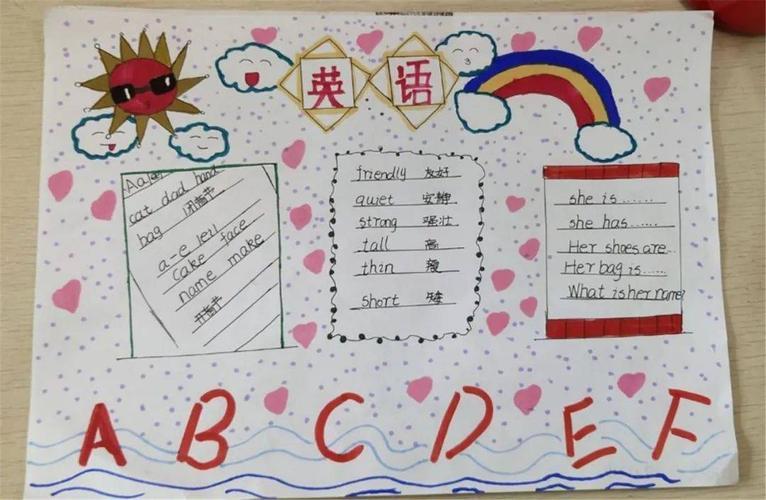 英语
Aa [æ]
cat dad hand
bag 闭音节
a-e [ei]
cake face
name make
开音节
friendly 友好
quiet 安静
strong 强壮
tall 高
thin 瘦
short 矮
she is......
she has......
Her shoes are...
Her bag is......
What is her name?
A B C D E F